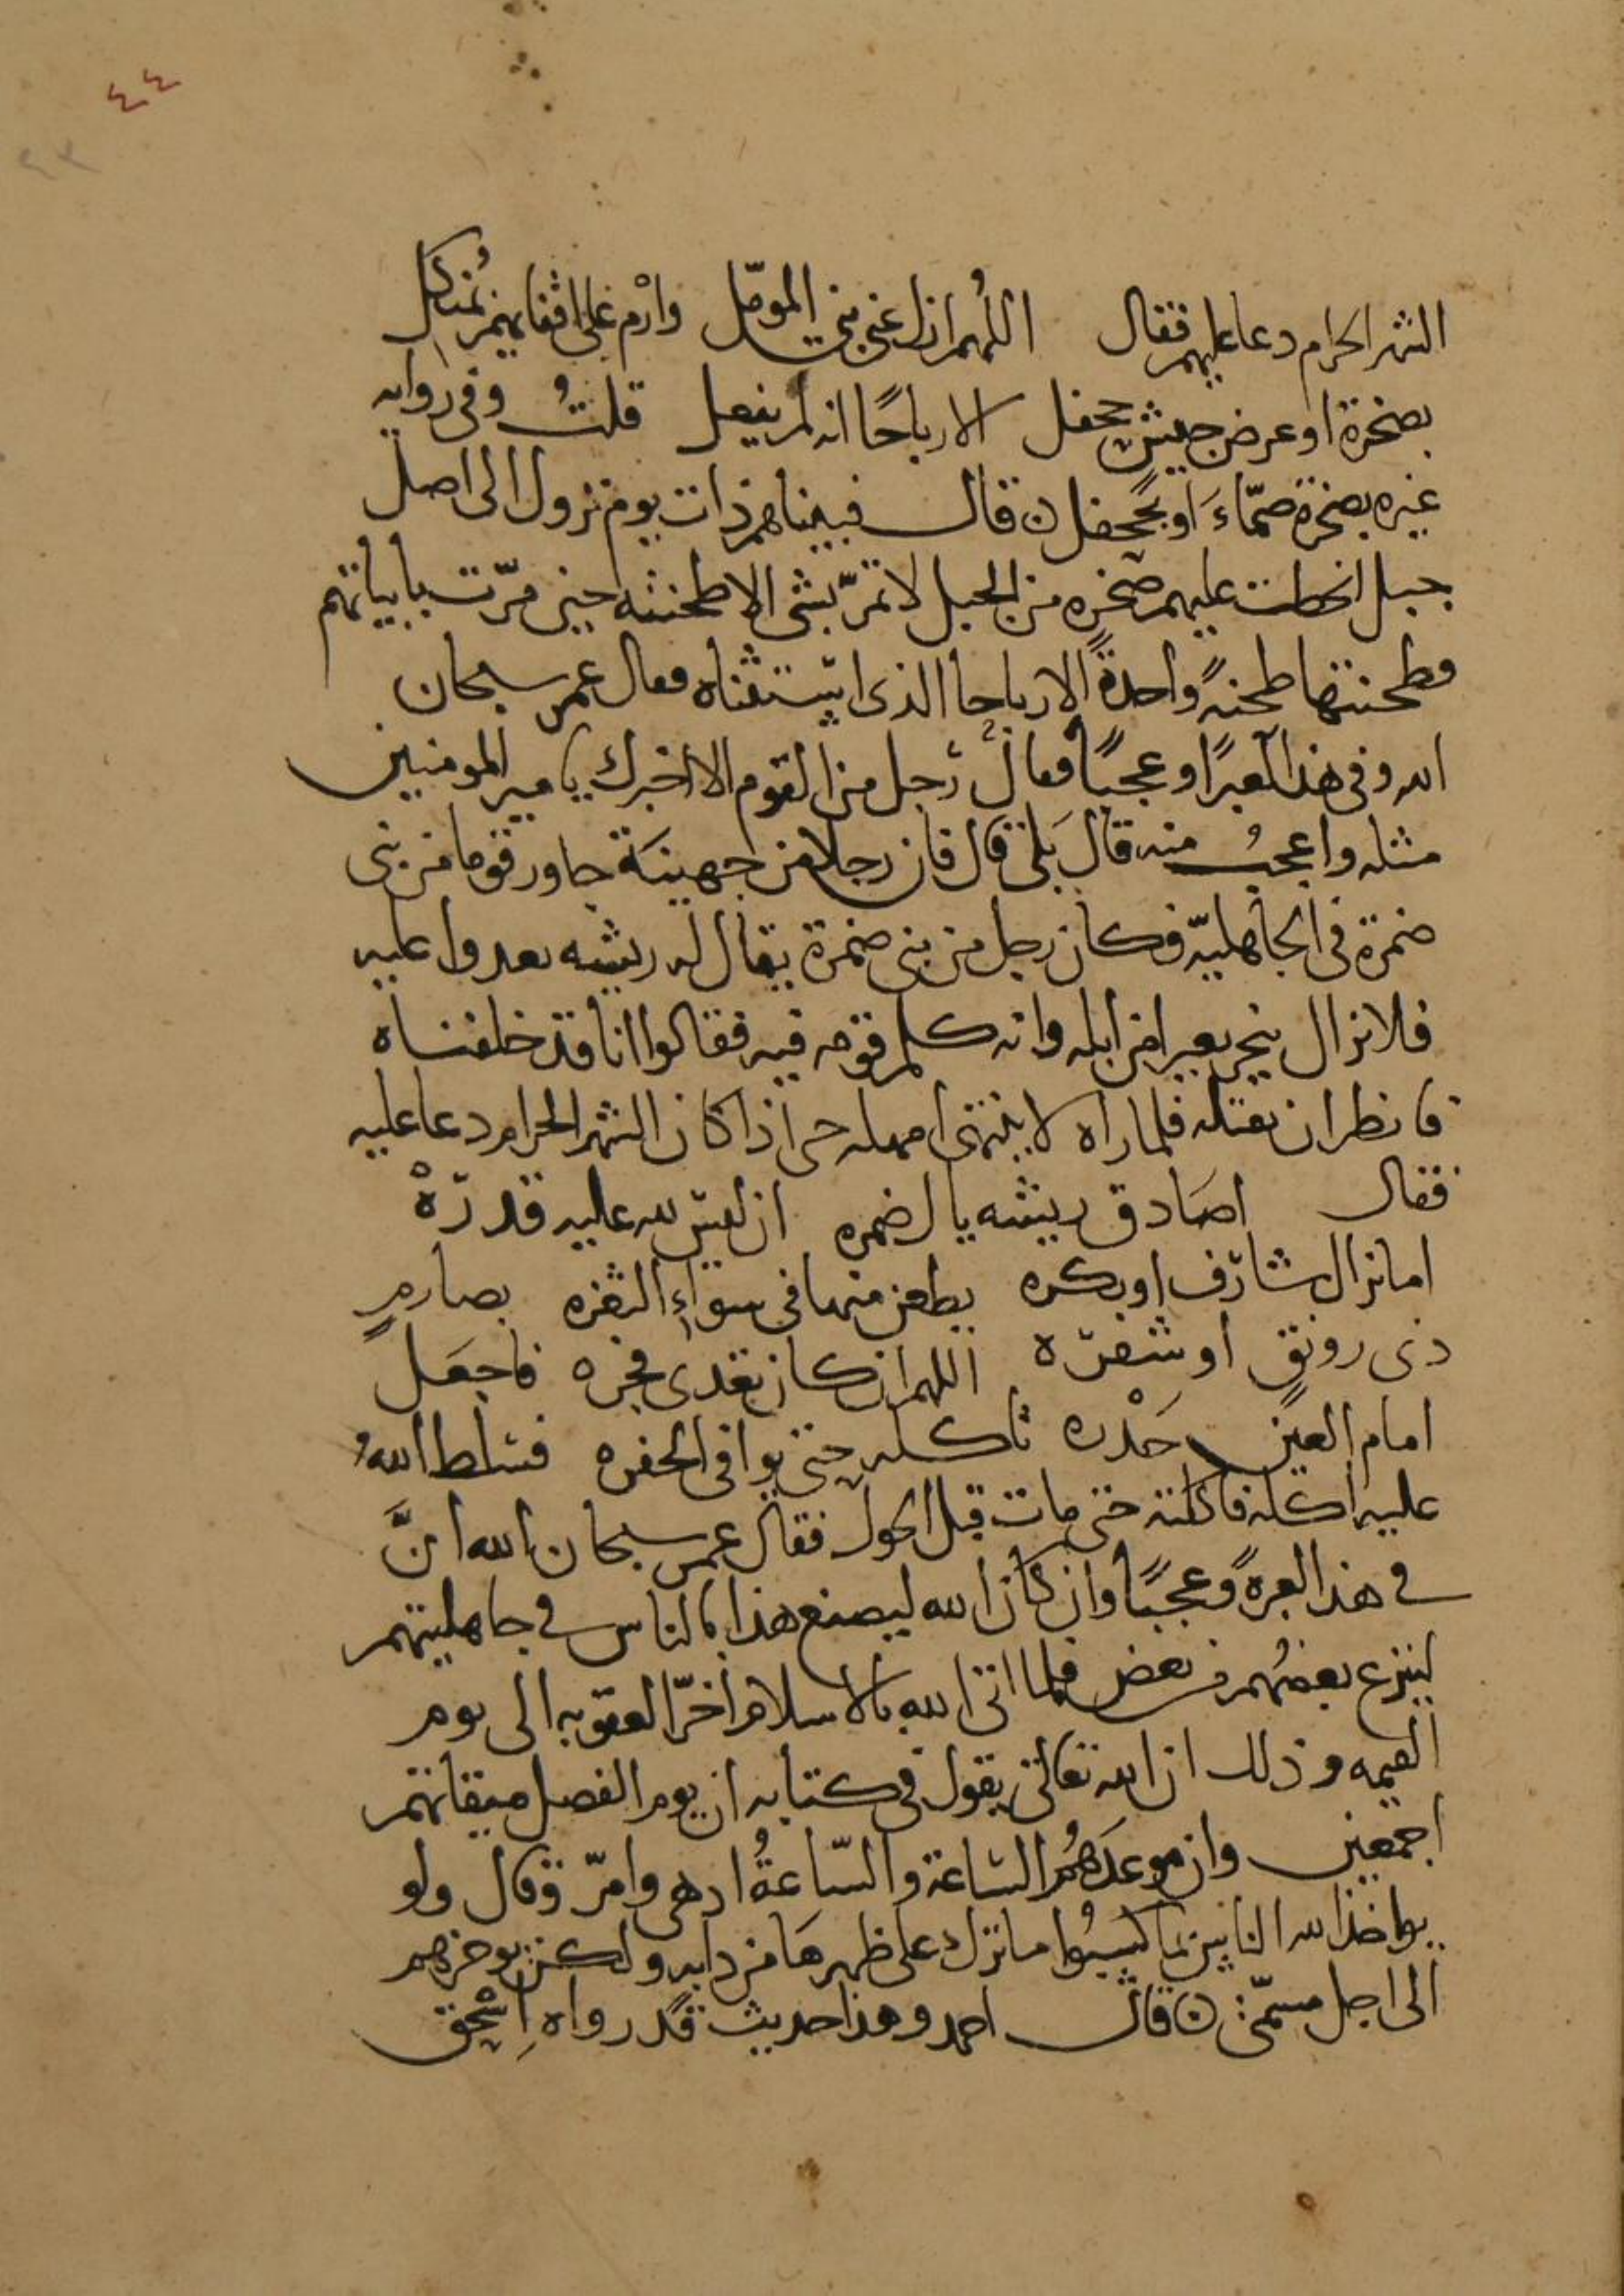 ٤٤
٤٣
الشهر الحرام دعا عليهم فقال اللهم ازل عني بني المومّل وارْم على اقفايهم بمنكل
بصخرة او عرض جيش جحفل الا رباحًا انه لم يفعل قلتُ وفي روايه
غيره بصخرة صمّاءَ او بجحفل ن قال فبينا هم ذات يوم نزول الى اصل
جبل انحطت عليهم صخره من الجبل لا تمرّ بشى الا طحنته حتى مرّت بابياتهم
فطحنتها طحنةً واحدةً الا رباحا الذى استثناه فقال عمر سبحان
الله وفى هذا لعبرًا وعجبًا فقال رجل من القوم الا اخبرك يامير المومنين
مثله واعجبُ منه قال بَلى قال فان رجلا من جهينَة جاور قوما من بنى
ضمرة فى الجاهليّه فكان رجل من بني ضمرة يقال له ريشه يعدوا عليه
فلا نزال ينحر بعيرا من ابله وانه كلم قومه فيه فقالوا انا قد خلعناه
فانظر ان تقتله فلما راه لا ينتهى امهله حى اذا كان الشهر الحرام دعا عليه
فقال اصَادق ريشه يال ضمره ان ليس لله عليه قدرَهْ
اما نزال شارف او بكره يطعن منها فى سواءِ الثغره بصارمٍ
ذى رونقٍ او شفرَه اللهم ان كان تعدى فجره فاجعَل
امام العين حَدْره تاكله حتى يوافى الحفره فسلط اللهُ
عليه اكلة فاكلته حتى مات قبل الحول فقال عمر سبحان الله انَّ
في هذا لعبرةً وعجبًا وان كان الله ليصنع هذا بالناس في جاهليتهم
لينزع بعضُهم من بعض فلما اتى الله بالاسلام اخّر العقوبه الى يوم
القيمه وذلك ان الله تعالى يقول فى كتابه ان يوم الفصل ميقاتهم
اجمعين وان موعدَهُم الساعة والسّاعةُ ادهى وامرّ وقال ولو
يواخذ الله الناس بما كسبُوا ما ترك على ظهرهَا من دابه ولكن يوخرهم
الى اجل مسمّى ن قال احمد وهذا حديث قد رواه اِسْحق